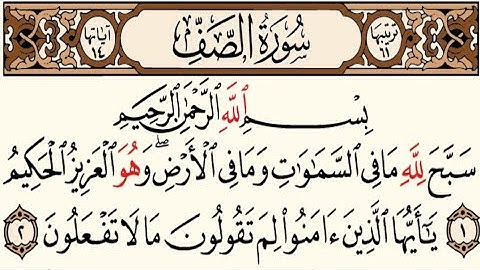 ترتيبها ٦١ سُورَةُ الصَّفِّ آياتها ١٤
بِسْمِ ٱللَّهِ ٱلرَّحْمَٰنِ ٱلرَّحِيمِ
سَبَّحَ لِلَّهِ مَا فِي ٱلسَّمَٰوَٰتِ وَمَا فِي ٱلْأَرْضِۖ وَهُوَ ٱلْعَزِيزُ ٱلْحَكِيمُ
١ يَٰٓأَيُّهَا ٱلَّذِينَ ءَامَنُوا۟ لِمَ تَقُولُونَ مَا لَا تَفْعَلُونَ ٢